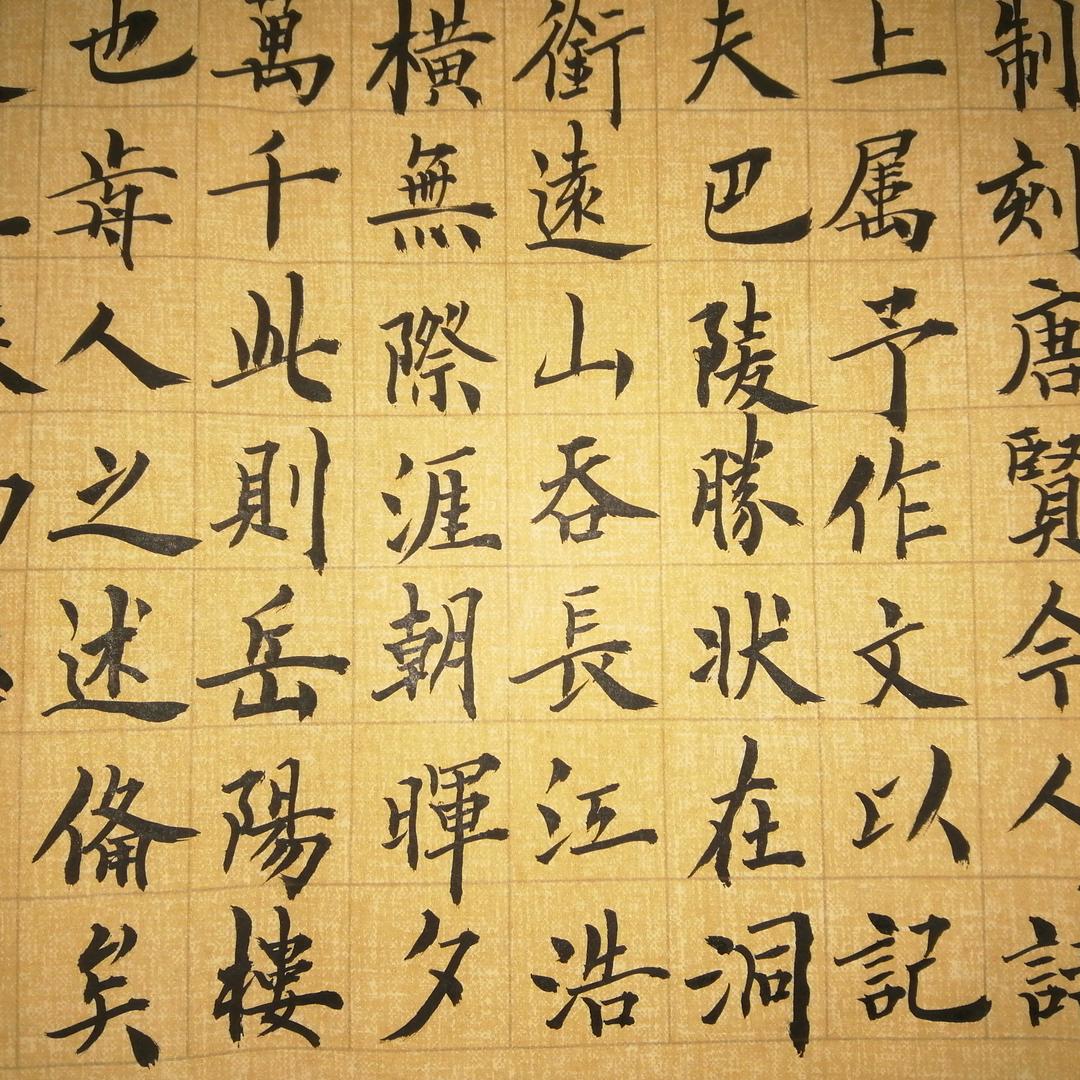 制刻唐賢今人詩
上属予作文以記
夫巴陵勝状在洞
銜遠山吞長江浩
橫無際涯朝暉夕
萬千此則岳陽樓
也前人之述備矣